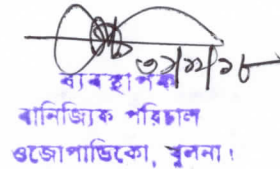 ব্যবস্থাপক
বানিজ্যিক পরিচাল
ওজোপাডিকো, খুলনা।